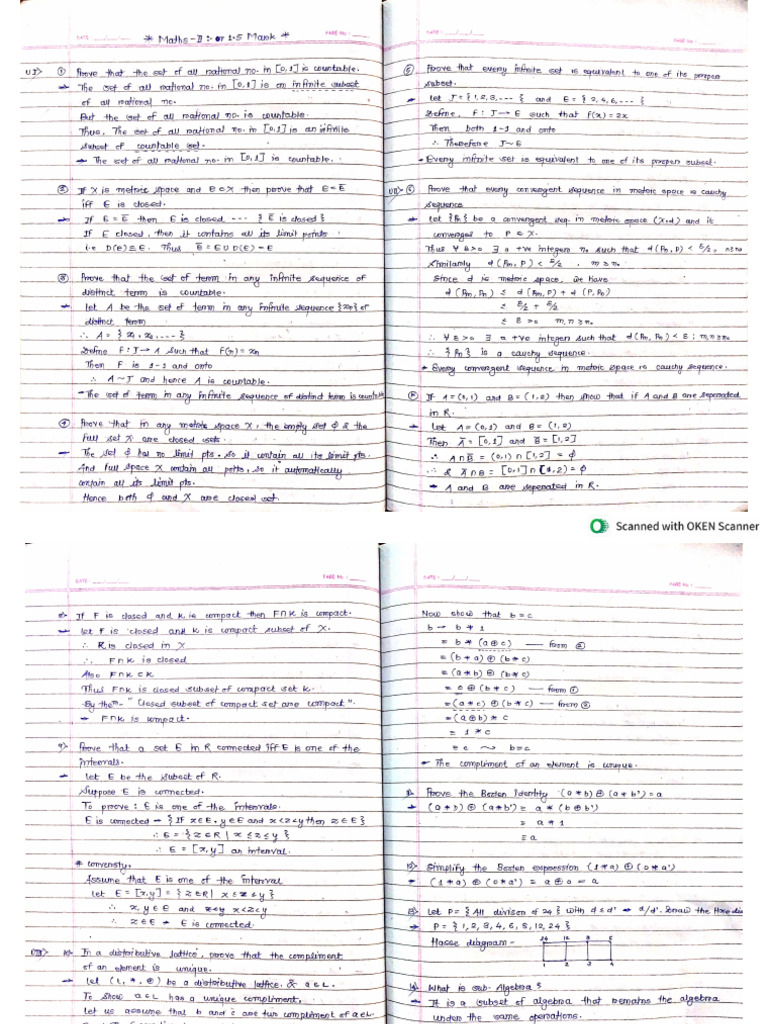 DATE
PAGE No.
* Maths-II :- or 1.5 Mark *
VI> ① Prove that the set of all rational no. in [0,1] is countable.
→ The set of all rational no. in [0,1] is an infinite subset
of all rational no.
But the set of all rational no is countable.
Thus, The set of all rational no. in [0,1] is an infinite
subset of countable set.
→ The set of all rational no. in [0,1] is countable.
② If X is metric space and E⊂X then prove that E=E̅
iff E is closed.
→ If E = E̅ then E is closed --- { E̅ is closed}
If E closed, then it contains all its limit points
i.e D(E)⊆E. Thus E̅ = E∪D(E) = E
③ Prove that the set of term in any infinite sequence of
distinct term is countable.
→ let A be the set of term in any infinite sequence {xn} of
distinct term
∴ A = { x₁, x₂, ....}
Define F: J→A such that F(n) = xn
Then F is 1-1 and onto
∴ A~J and hence A is countable.
- The set of term in any infinite sequence of distinct term is countable
④ Prove that in any metric space X, the empty set ϕ & the
full set X are closed sets.
→ The set ϕ has no limit pts. so it contain all its limit pts.
And full space X contain all points, so it automatically
contain all its limit pts.
Hence both ϕ and X are closed set.
DATE
PAGE No.
⑤ Prove that every infinite set is equivalent to one of its proper
subset.
→ let J = {1,2,3,---} and E = {2,4,6,---}
Define, F: J→E such that f(x) = 2x
Then both 1-1 and onto
∴ Therefore J~E
- Every infinite set is equivalent to one of its proper subset.
VII> ⑥ Prove that every convergent sequence in metric space is cauchy
sequence
→ let {Pn} be a convergent seq. in metric space (X,d) and it
converged to P∈X.
Thus ∀ ε>0 ∃ a +ve integer n₀ such that d(Pn,P) < ε/2, n≥n₀
Similarly d(Pm,P) < ε/2, m≥n₀
Since d is metric space, we have
d(Pm,Pn) ≤ d(Pm,P) + d(P,Pn)
≤ ε/2 + ε/2
≤ ε>0 m,n≥n₀
∴ ∀ ε>0 ∃ a +ve integer such that d(Pm,Pn) < ε; m,n≥n₀
∴ {Pn} is a cauchy sequence.
- Every convergent sequence in metric space is cauchy sequence.
⑦ If A=(0,1) and B=(1,2) then show that if A and B are seperated
in R.
→ Let A=(0,1) and B=(1,2)
Then A̅ = [0,1] and B̅ = [1,2]
∴ A∩B̅ = (0,1)∩[1,2] = ϕ
∴ & A̅∩B = [0,1]∩(1,2) = ϕ
→ A and B are seperated in R.
Scanned with OKEN Scanner
DATE
PAGE No.
8> If F is closed and k is compact then F∩K is compact.
→ let F is closed and k is compact subset of X.
∴ K is closed in X
∴ F∩K is closed
Also F∩K⊂K
Thus F∩K is closed subset of compact set k.
By thm- "Closed subset of compact set are compact".
→ F∩K is compact.
9> Prove that a set E in R connected iff E is one of the
intervals.
→ Let E be the subset of R.
Suppose E is connected.
To prove: E is one of the intervals.
E is connected → {If x∈E, y∈E and x<z<y then z∈E}
∴ E = {z∈R | x≤z≤y}
∴ E = [x,y] an interval.
* conversly,
Assume that E is one of the interval
let E = [x,y] = {z∈R | x≤z≤y}
∴ x,y∈E and z<y x<z<y
∴ z∈E → E is connected.
VIII> 10> In a distributive lattice, prove that the compliment
of an element is unique.
→ Let (L,*,⊕) be a distributive lattice, & a∈L.
To show a∈L has a unique compliment,
let us assume that b and c are two compliment of a∈L
DATE
PAGE No.
Now show that b=c
b → b * 1
= b * (a⊕c) —— form ②
= (b*a) ⊕ (b*c)
= (a*b) ⊕ (b*c)
= 0 ⊕ (b*c) —— form ①
= (a*c) ⊕ (b*c) —— form ②
= (a⊕b) * c
= 1 * c
= c ⤳ b=c
- The compliment of an element is unique.
Prove the Boolen Identity (a*b) ⊕ (a*b') = a
→ (a*b) ⊕ (a*b') = a * (b⊕b')
= a * 1
= a
12> Simplify the Boolen expression (1*a) ⊕ (0*a')
- (1*a) ⊕ (0*a') = a ⊕ 0 = a
13> Let P = {All divisor of 24} with
→ P = {1,2,3,4,6,8,12,24}
Hasse diagram -
24 12 8 6
1 2 3 4
14> What is sub-Algebra?
- It is a subset of algebra that remains the algebra
under the same operations.